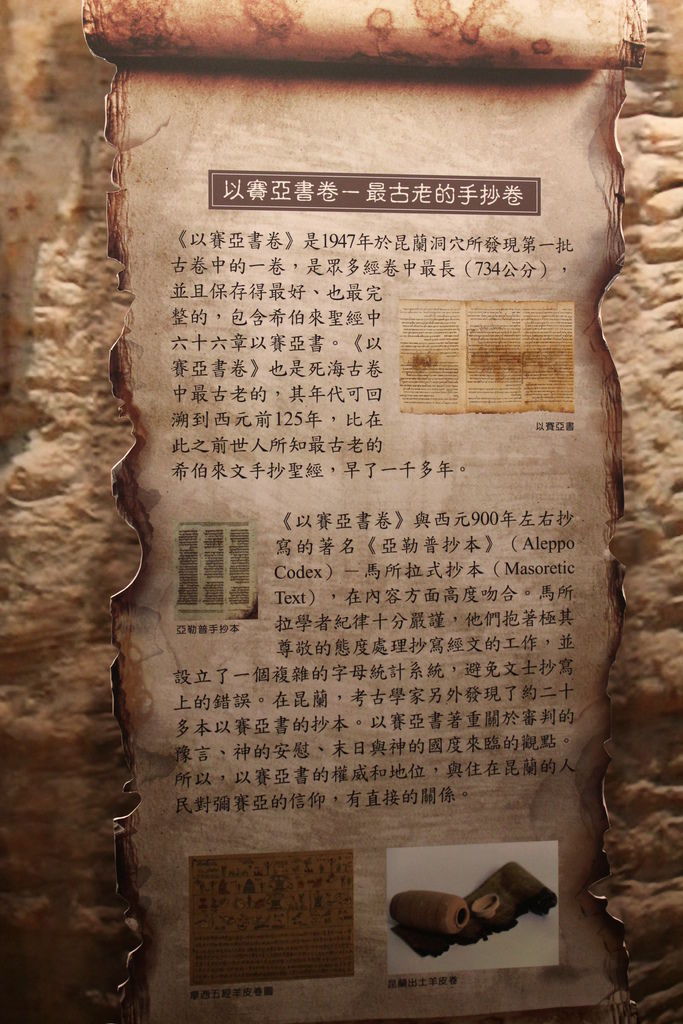 以賽亞書卷－最古老的手抄卷
《以賽亞書卷》是1947年於昆蘭洞穴所發現第一批
古卷中的一卷，是眾多經卷中最長（734公分），
並且保存得最好、也最完
整的，包含希伯來聖經中
六十六章以賽亞書。《以
賽亞書卷》也是死海古卷
中最古老的，其年代可回
溯到西元前125年，比在
此之前世人所知最古老的
希伯來文手抄聖經，早了一千多年。
以賽亞書
《以賽亞書卷》與西元900年左右抄
寫的著名《亞勒普抄本》（Aleppo
Codex）－馬所拉式抄本（Masoretic
Text），在內容方面高度吻合。馬所
拉學者紀律十分嚴謹，他們抱著極其
尊敬的態度處理抄寫經文的工作，並
設立了一個複雜的字母統計系統，避免文士抄寫
上的錯誤。在昆蘭，考古學家另外發現了約二十
多本以賽亞書的抄本。以賽亞書著重關於審判的
豫言、神的安慰、末日與神的國度來臨的觀點。
所以，以賽亞書的權威和地位，與住在昆蘭的人
民對彌賽亞的信仰，有直接的關係。
亞勒普手抄本
摩西五經羊皮卷圖
昆蘭出土羊皮卷